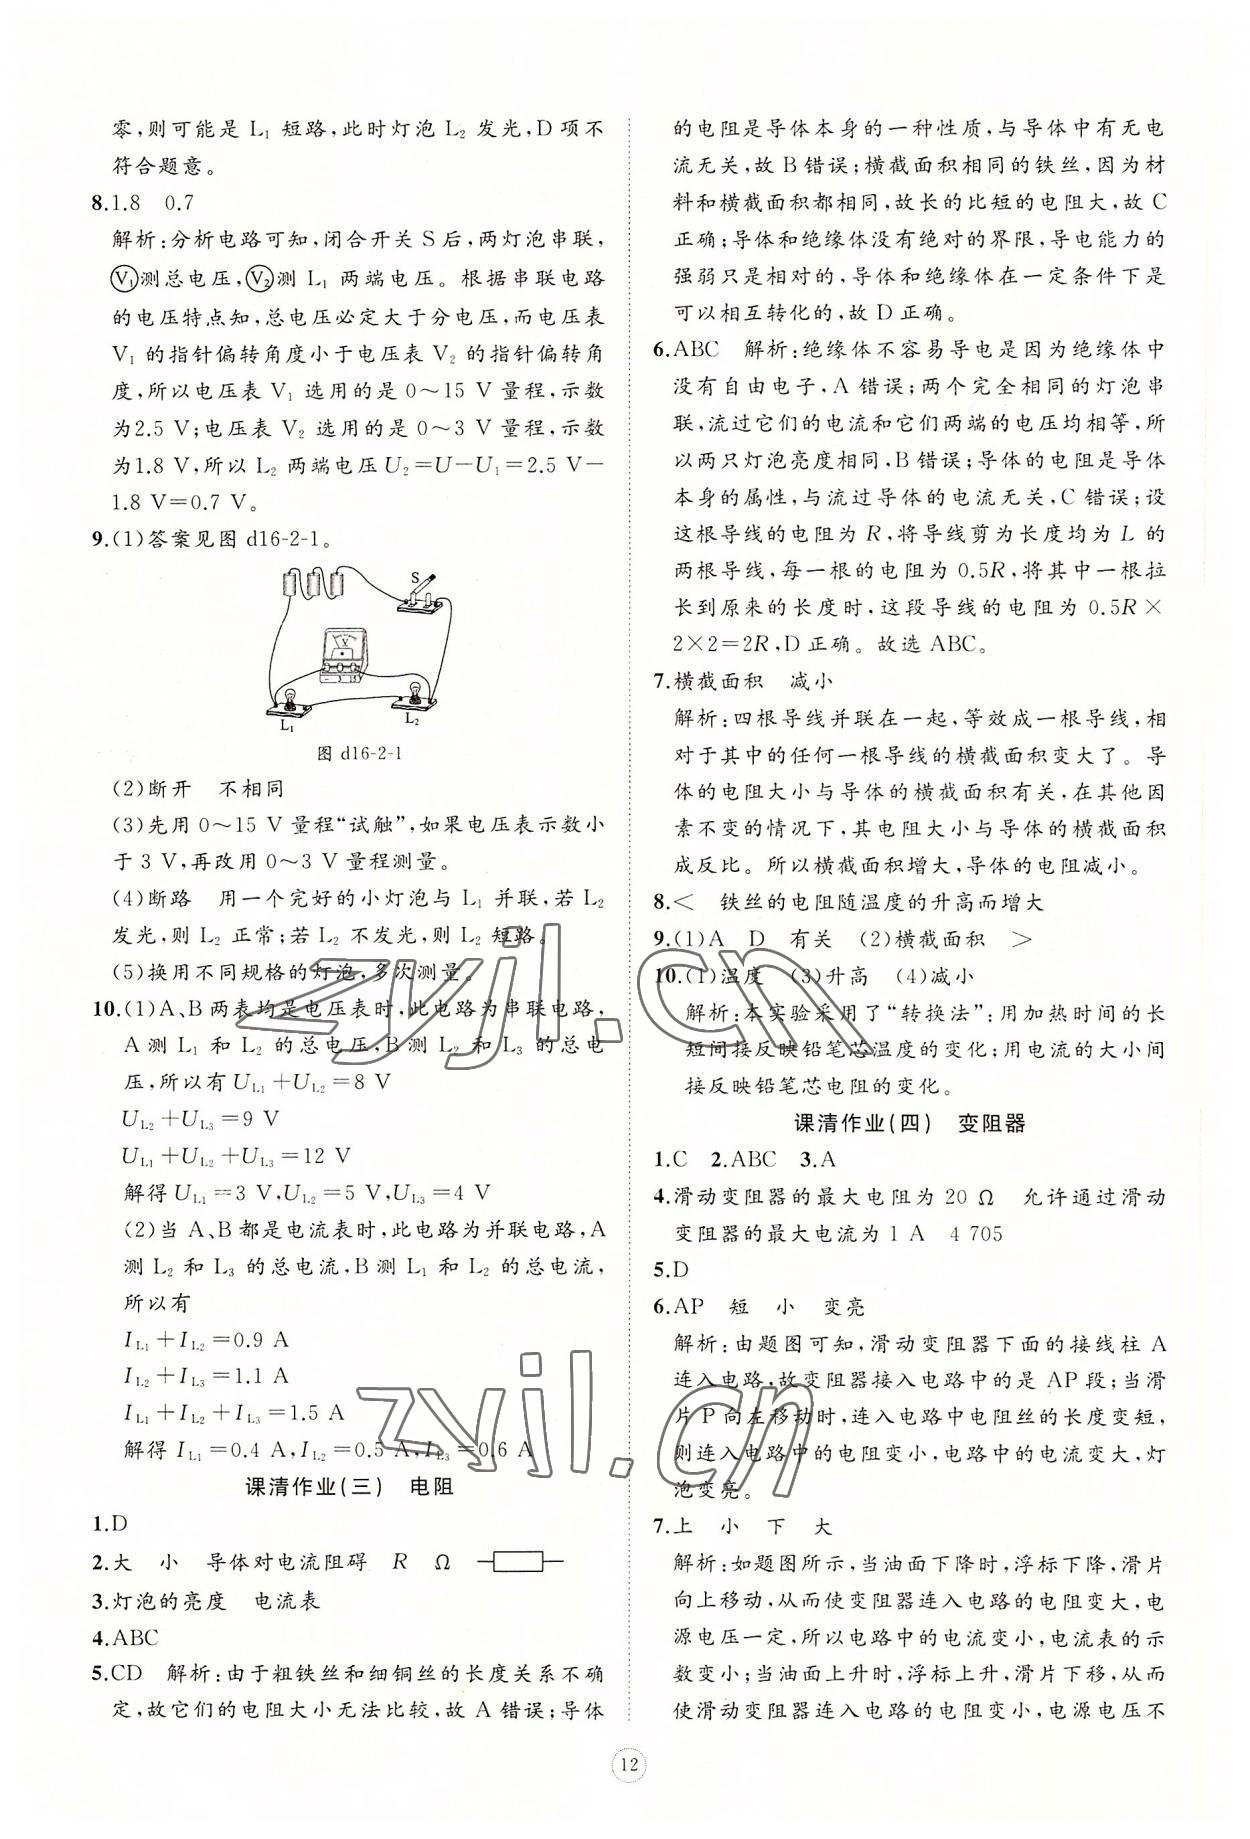 零,则可能是 L₁ 短路,此时灯泡 L₂ 发光,D 项不
符合题意。
8.1.8　0.7
解析:分析电路可知,闭合开关 S 后,两灯泡串联,
V₁测总电压,V₂测 L₁ 两端电压。根据串联电路
的电压特点知,总电压必定大于分电压,而电压表
V₁ 的指针偏转角度小于电压表 V₂ 的指针偏转角
度,所以电压表 V₁ 选用的是 0～15 V 量程,示数
为2.5 V;电压表 V₂ 选用的是 0～3 V 量程,示数
为1.8 V,所以 L₂ 两端电压U₂=U−U₁=2.5 V−
1.8 V=0.7 V。
9.(1)答案见图 d16-2-1。
S
V
− 3 15
L₁
L₂
图 d16-2-1
(2)断开　不相同
(3)先用 0～15 V 量程“试触”,如果电压表示数小
于 3 V,再改用 0～3 V 量程测量。
(4)断路　用一个完好的小灯泡与 L₁ 并联,若 L₂
发光,则 L₂ 正常;若 L₂ 不发光,则 L₂ 短路。
(5)换用不同规格的灯泡,多次测量。
10.(1)A、B 两表均是电压表时,此电路为串联电路,
A 测 L₁ 和 L₂ 的总电压,B 测 L₂ 和 L₃ 的总电
压,所以有 U_L₁+U_L₂=8 V
U_L₂+U_L₃=9 V
U_L₁+U_L₂+U_L₃=12 V
解得 U_L₁=3 V,U_L₂=5 V,U_L₃=4 V
(2)当 A、B 都是电流表时,此电路为并联电路,A
测 L₂ 和 L₃ 的总电流,B 测 L₁ 和 L₂ 的总电流,
所以有
I_L₁+I_L₂=0.9 A
I_L₂+I_L₃=1.1 A
I_L₁+I_L₂+I_L₃=1.5 A
解得 I_L₁=0.4 A,I_L₂=0.5 A,I_L₃=0.6 A
课清作业(三)　电阻
1.D
2.大　小　导体对电流阻碍　R　Ω
3.灯泡的亮度　电流表
4.ABC
5.CD　解析:由于粗铁丝和细铜丝的长度关系不确
定,故它们的电阻大小无法比较,故 A 错误;导体
的电阻是导体本身的一种性质,与导体中有无电
流无关,故 B 错误;横截面积相同的铁丝,因为材
料和横截面积都相同,故长的比短的电阻大,故 C
正确;导体和绝缘体没有绝对的界限,导电能力的
强弱只是相对的,导体和绝缘体在一定条件下是
可以相互转化的,故 D 正确。
6.ABC　解析:绝缘体不容易导电是因为绝缘体中
没有自由电子,A 错误;两个完全相同的灯泡串
联,流过它们的电流和它们两端的电压均相等,所
以两只灯泡亮度相同,B 错误;导体的电阻是导体
本身的属性,与流过导体的电流无关,C 错误;设
这根导线的电阻为 R,将导线剪为长度均为 L 的
两根导线,每一根的电阻为 0.5R,将其中一根拉
长到原来的长度时,这段导线的电阻为 0.5R×
2×2=2R,D 正确。故选 ABC。
7.横截面积　减小
解析:四根导线并联在一起,等效成一根导线,相
对于其中的任何一根导线的横截面积变大了。导
体的电阻大小与导体的横截面积有关,在其他因
素不变的情况下,其电阻大小与导体的横截面积
成反比。所以横截面积增大,导体的电阻减小。
8.<　铁丝的电阻随温度的升高而增大
9.(1)A　D　有关　(2)横截面积　>
10.(1)温度　(3)升高　(4)减小
解析:本实验采用了“转换法”:用加热时间的长
短间接反映铅笔芯温度的变化;用电流的大小间
接反映铅笔芯电阻的变化。
课清作业(四)　变阻器
1.C　2.ABC　3.A
4.滑动变阻器的最大电阻为 20 Ω　允许通过滑动
变阻器的最大电流为 1 A　4 705
5.D
6.AP　短　小　变亮
解析:由题图可知,滑动变阻器下面的接线柱 A
连入电路,故变阻器接入电路中的是 AP 段;当滑
片 P 向左移动时,连入电路中电阻丝的长度变短,
则连入电路中的电阻变小,电路中的电流变大,灯
泡变亮。
7.上　小　下　大
解析:如题图所示,当油面下降时,浮标下降,滑片
向上移动,从而使变阻器连入电路的电阻变大,电
源电压一定,所以电路中的电流变小,电流表的示
数变小;当油面上升时,浮标上升,滑片下移,从而
使滑动变阻器连入电路的电阻变小,电源电压不
12
zyjl.cn
zyjl.cn